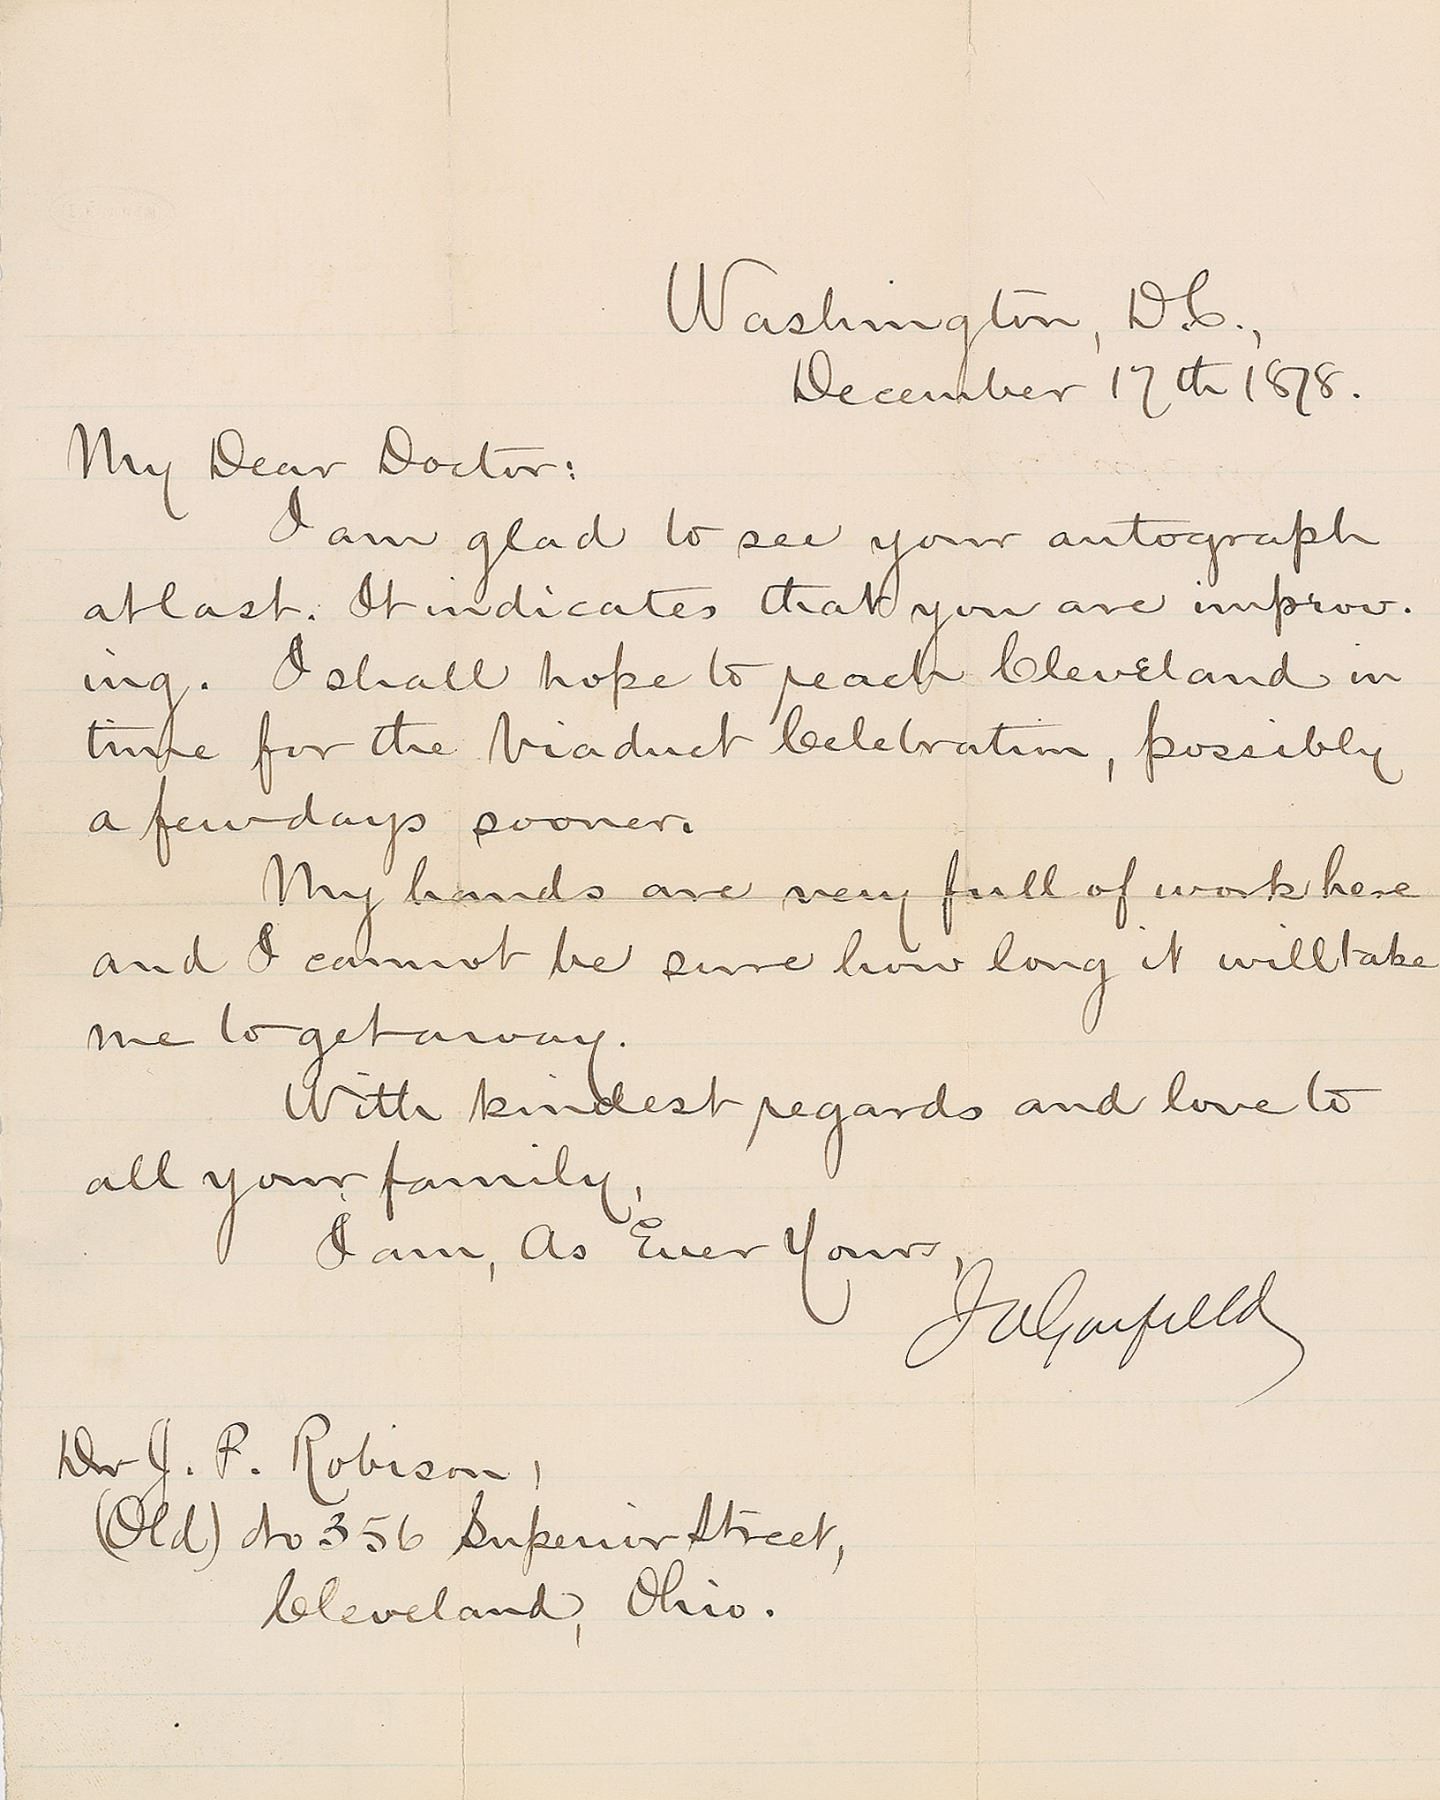 Washington, D.C.,
December 17th 1878.
My Dear Doctor:
I am glad to see your autograph
at last. It indicates that you are improv-
ing. I shall hope to reach Cleveland in
time for the Viaduct Celebration, possibly
a few days sooner.
My hands are very full of work here
and I cannot be sure how long it will take
me to get away.
With kindest regards and love to
all your family,
I am, As Ever Yours,
J A Garfield
Dr J. P. Robison,
(Old) No 356 Superior Street,
Cleveland, Ohio.